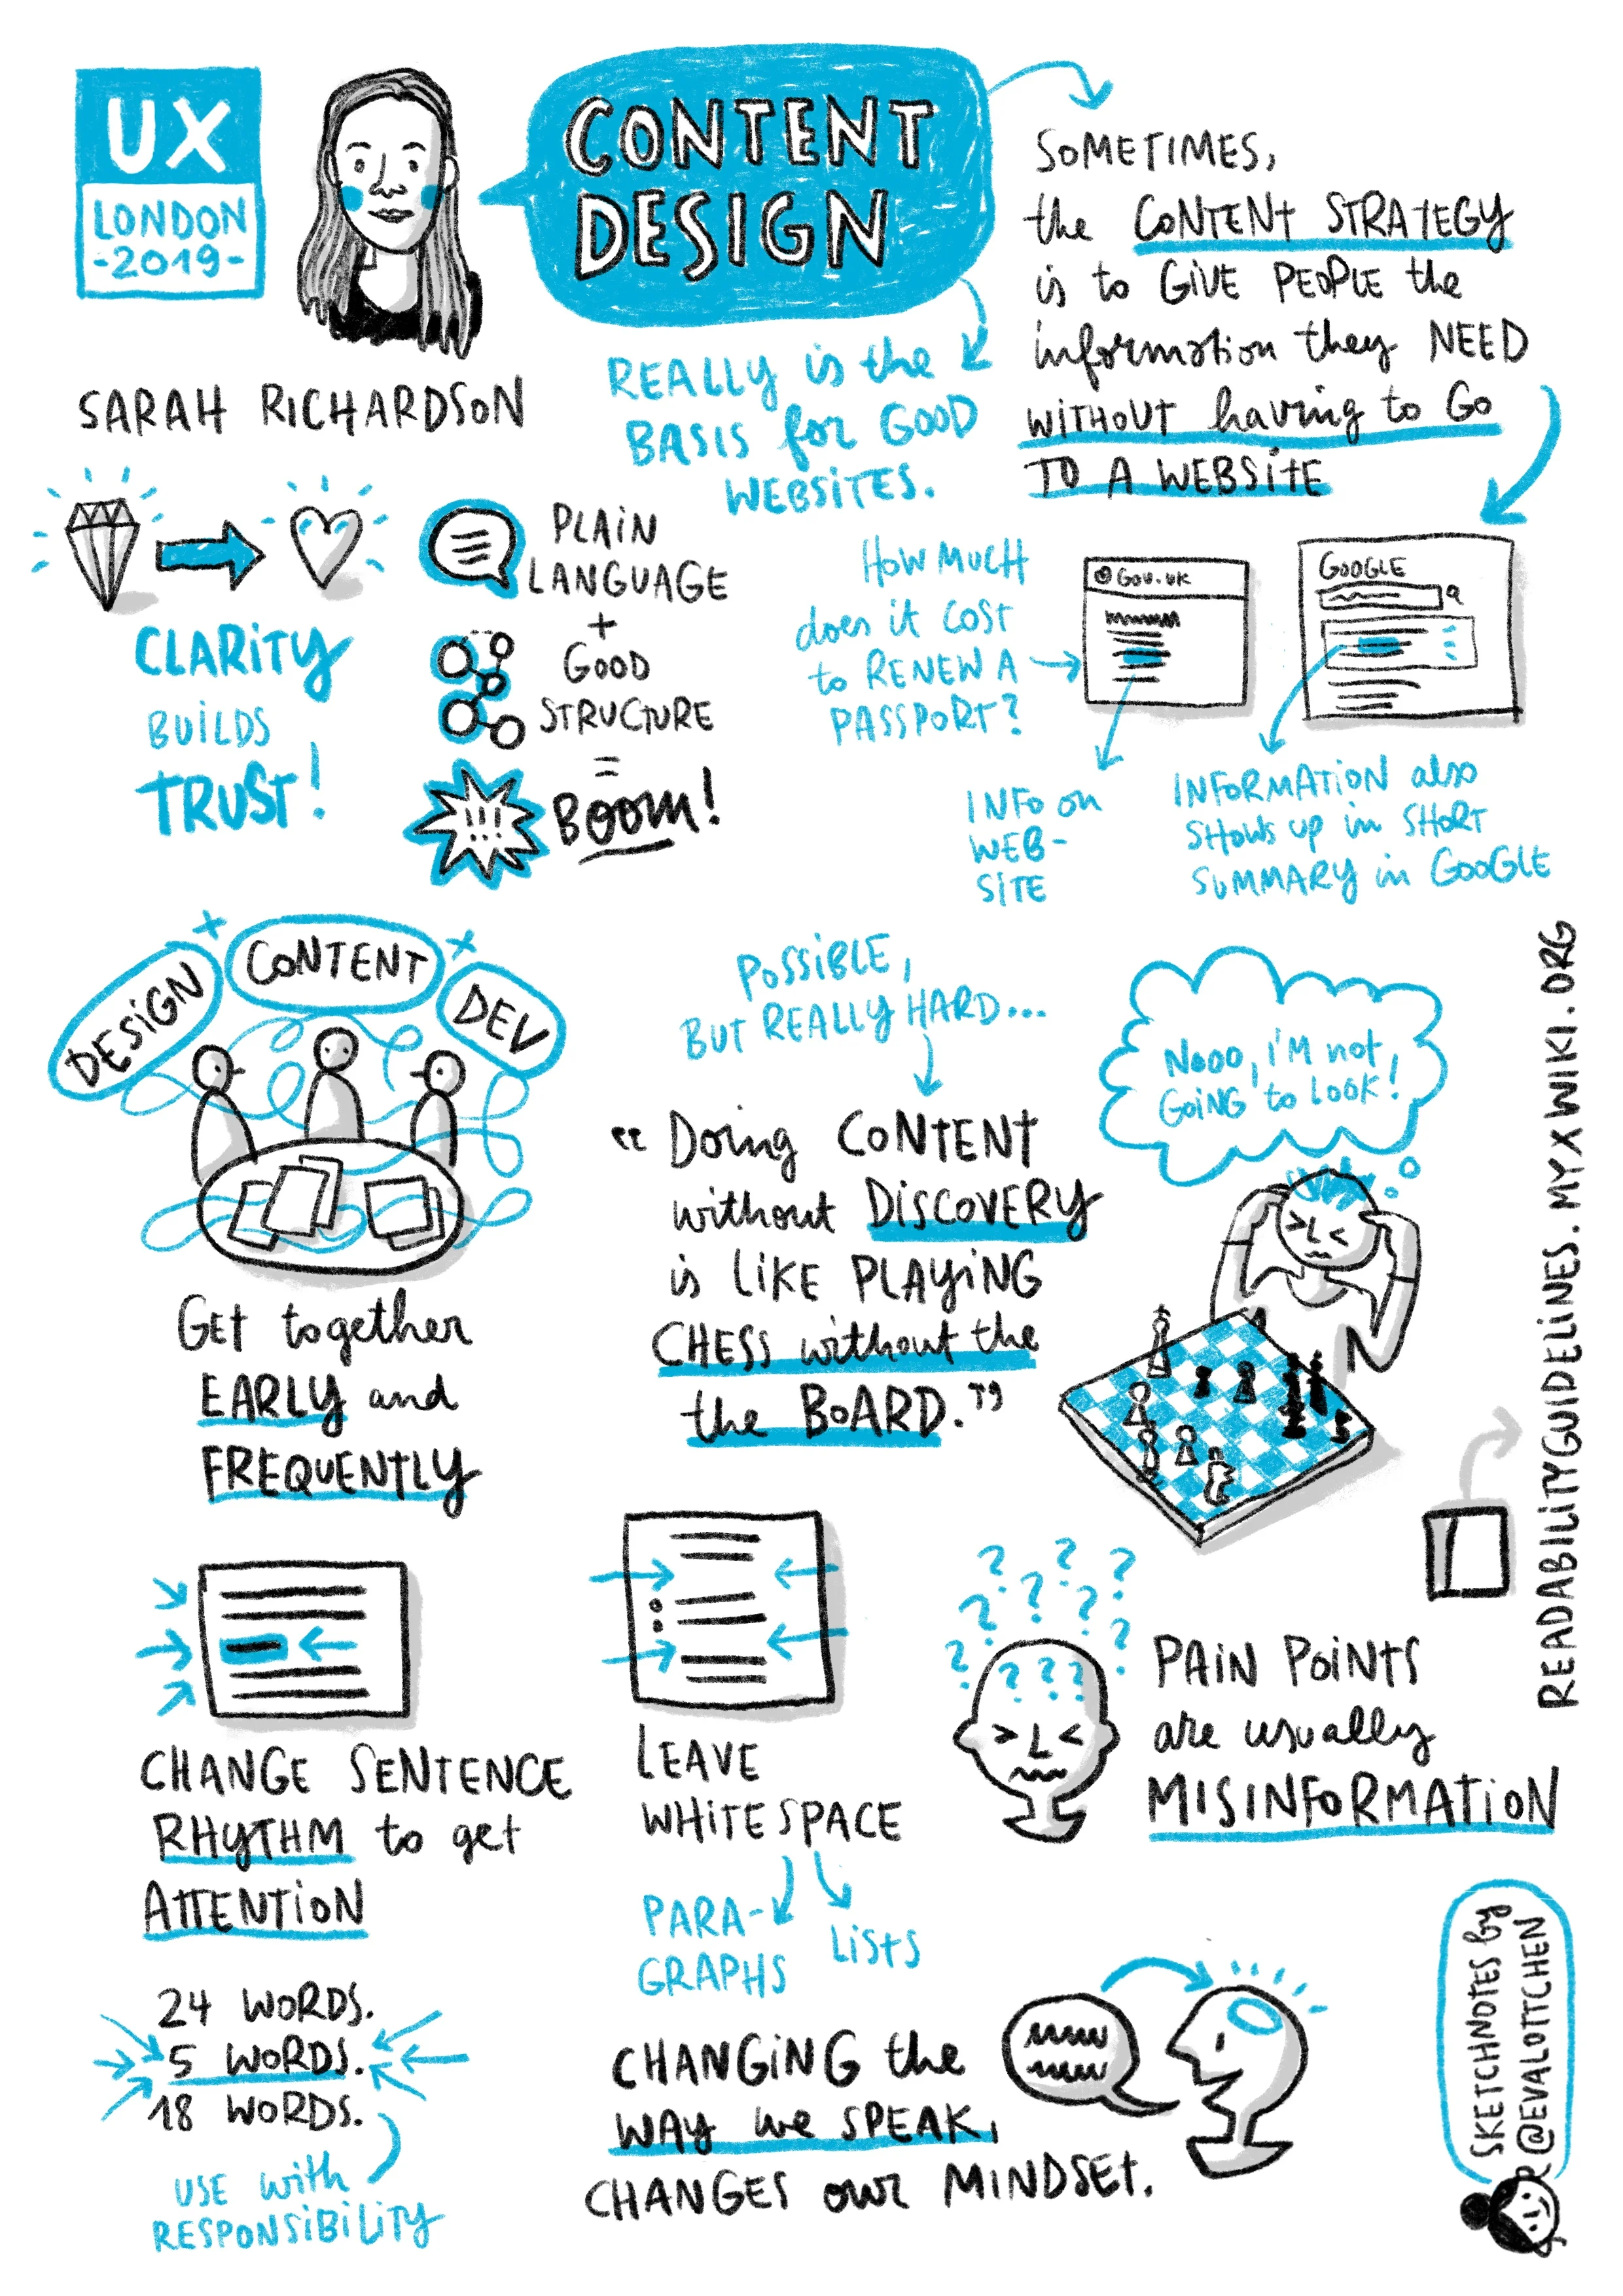 UX
LONDON
-2019-
SARAH RICHARDSON
CONTENT
DESIGN
REALLY is the
BASIS for GOOD
WEBSITES.
SOMETIMES,
the CONTENT STRATEGY
is to GIVE PEOPLE the
information they NEED
WITHOUT having to GO
TO A WEBSITE
CLARITY
BUILDS
TRUST!
PLAIN
LANGUAGE
+
GOOD
STRUCTURE
=
!!!
BOOM!
HOW MUCH
does it COST
to RENEW A
PASSPORT?
GOV.UK
GOOGLE
INFO on
WEB-
SITE
INFORMATION also
SHOWS up in SHORT
SUMMARY in GOOGLE
DESIGN
x
CONTENT
x
DEV
Get together
EARLY and
FREQUENTLY
POSSIBLE,
BUT REALLY HARD...
“Doing CONTENT
without DISCOVERY
is LIKE PLAYING
CHESS without the
the BOARD.”
Nooo, I'M not
GOING to LOOK!
READABILITYGUIDELINES.MYXWIKI.ORG
CHANGE SENTENCE
RHYTHM to get
ATTENTION
24 WORDS.
5 WORDS.
18 WORDS.
USE with
RESPONSIBILITY
LEAVE
WHITESPACE
PARA-
GRAPHS
LISTS
? ? ? ? ? ? ? ? ? ? ? ?
PAIN POINTS
are usually
MISINFORMATION
CHANGING the
WAY we SPEAK,
CHANGES our MINDSET.
SKETCHNOTES by
@EVALOTTCHEN